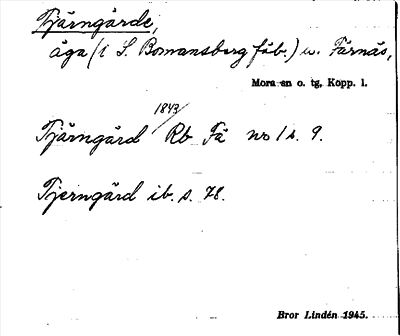 Tjärngärde,
äga (i S. Bomansberg fäb.) u. Färnäs,
Mora sn o. tg, Kopp. l.
1843/
Tjärngärd Rb Fä no 1 s. 9.
Tjerngärd ib. s. 78.
Bror Lindén 1945.